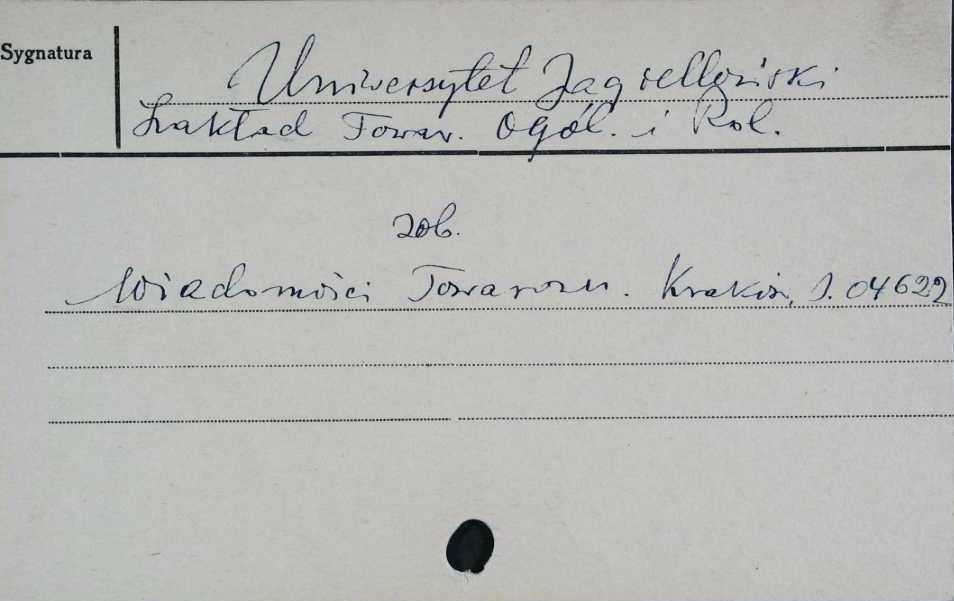 Sygnatura
Uniwersytet Jagielloński
Zakład Towar. Ogól. i Rol.
zob.
Wiadomości Towarozn. Kraków, S. 04622